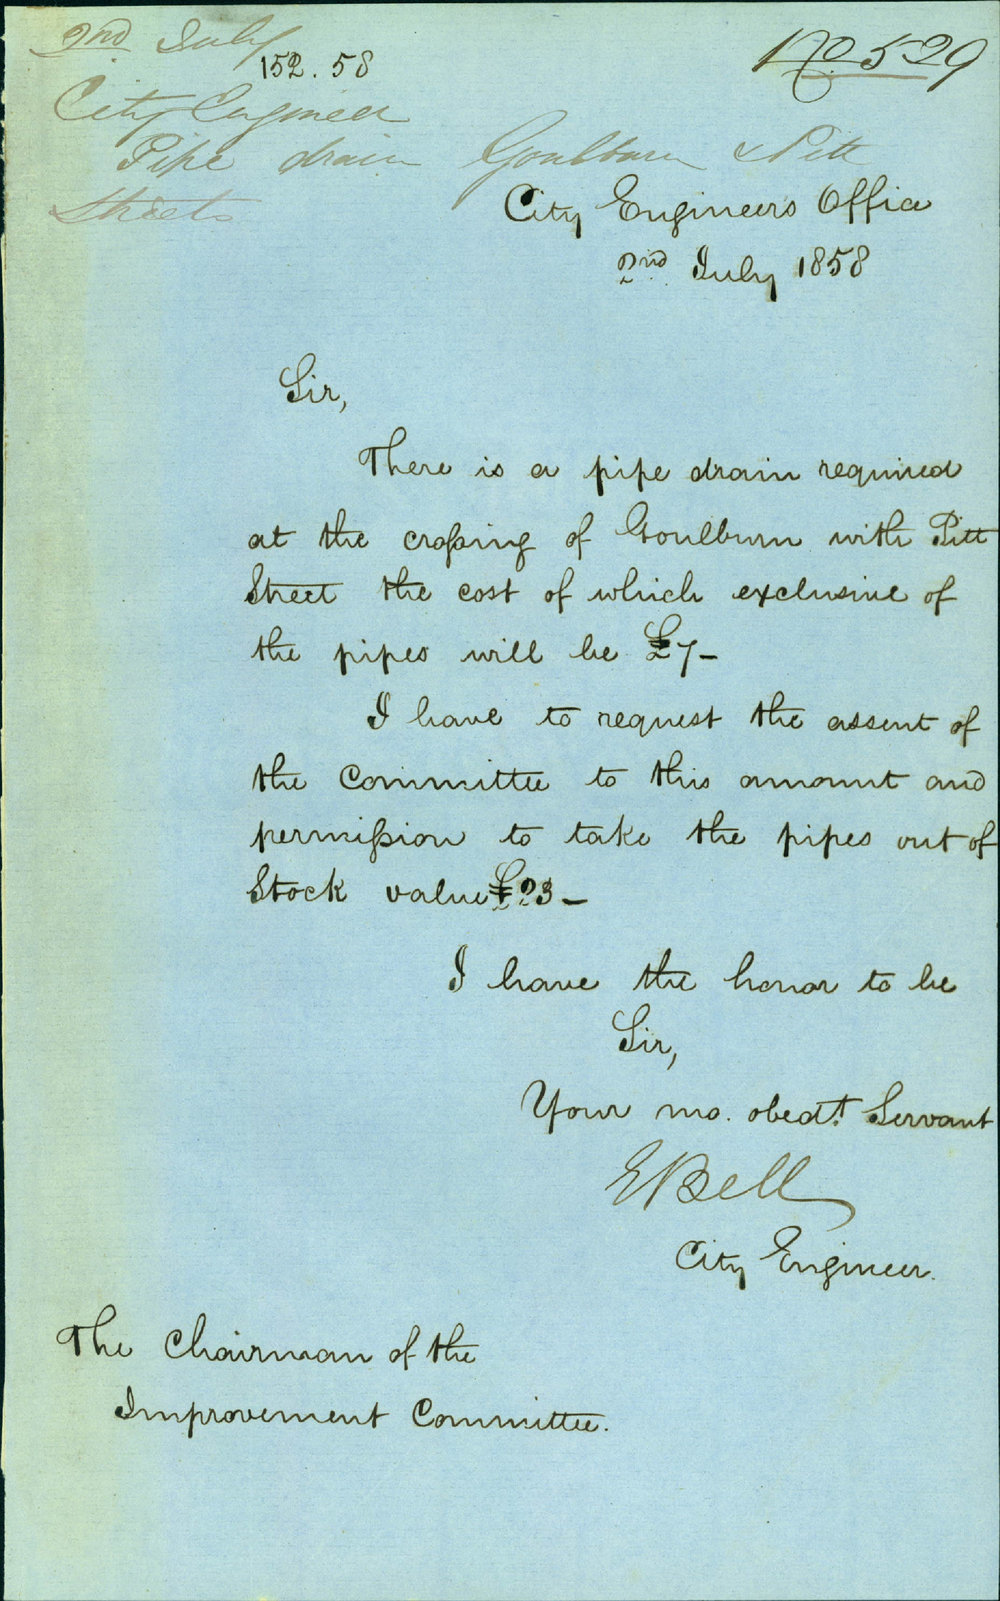 2nd July
152.58
No 529
City Engineer
Pipe drain Goulburn & Pitt
Streets
City Engineers Office
2nd July 1858
Sir,
There is a pipe drain required
at the croſsing of Goulburn with Pitt
Street the cost of which exclusive of
the pipes will be £7-
I have to request the assent of
the Committee to this amount and
permiſsion to take the pipes out of
Stock value £23-
I have the honor to be
Sir,
Your mo. obedt. Servant
E Bell
City Engineer.
The Chairman of the
Improvement Committee.